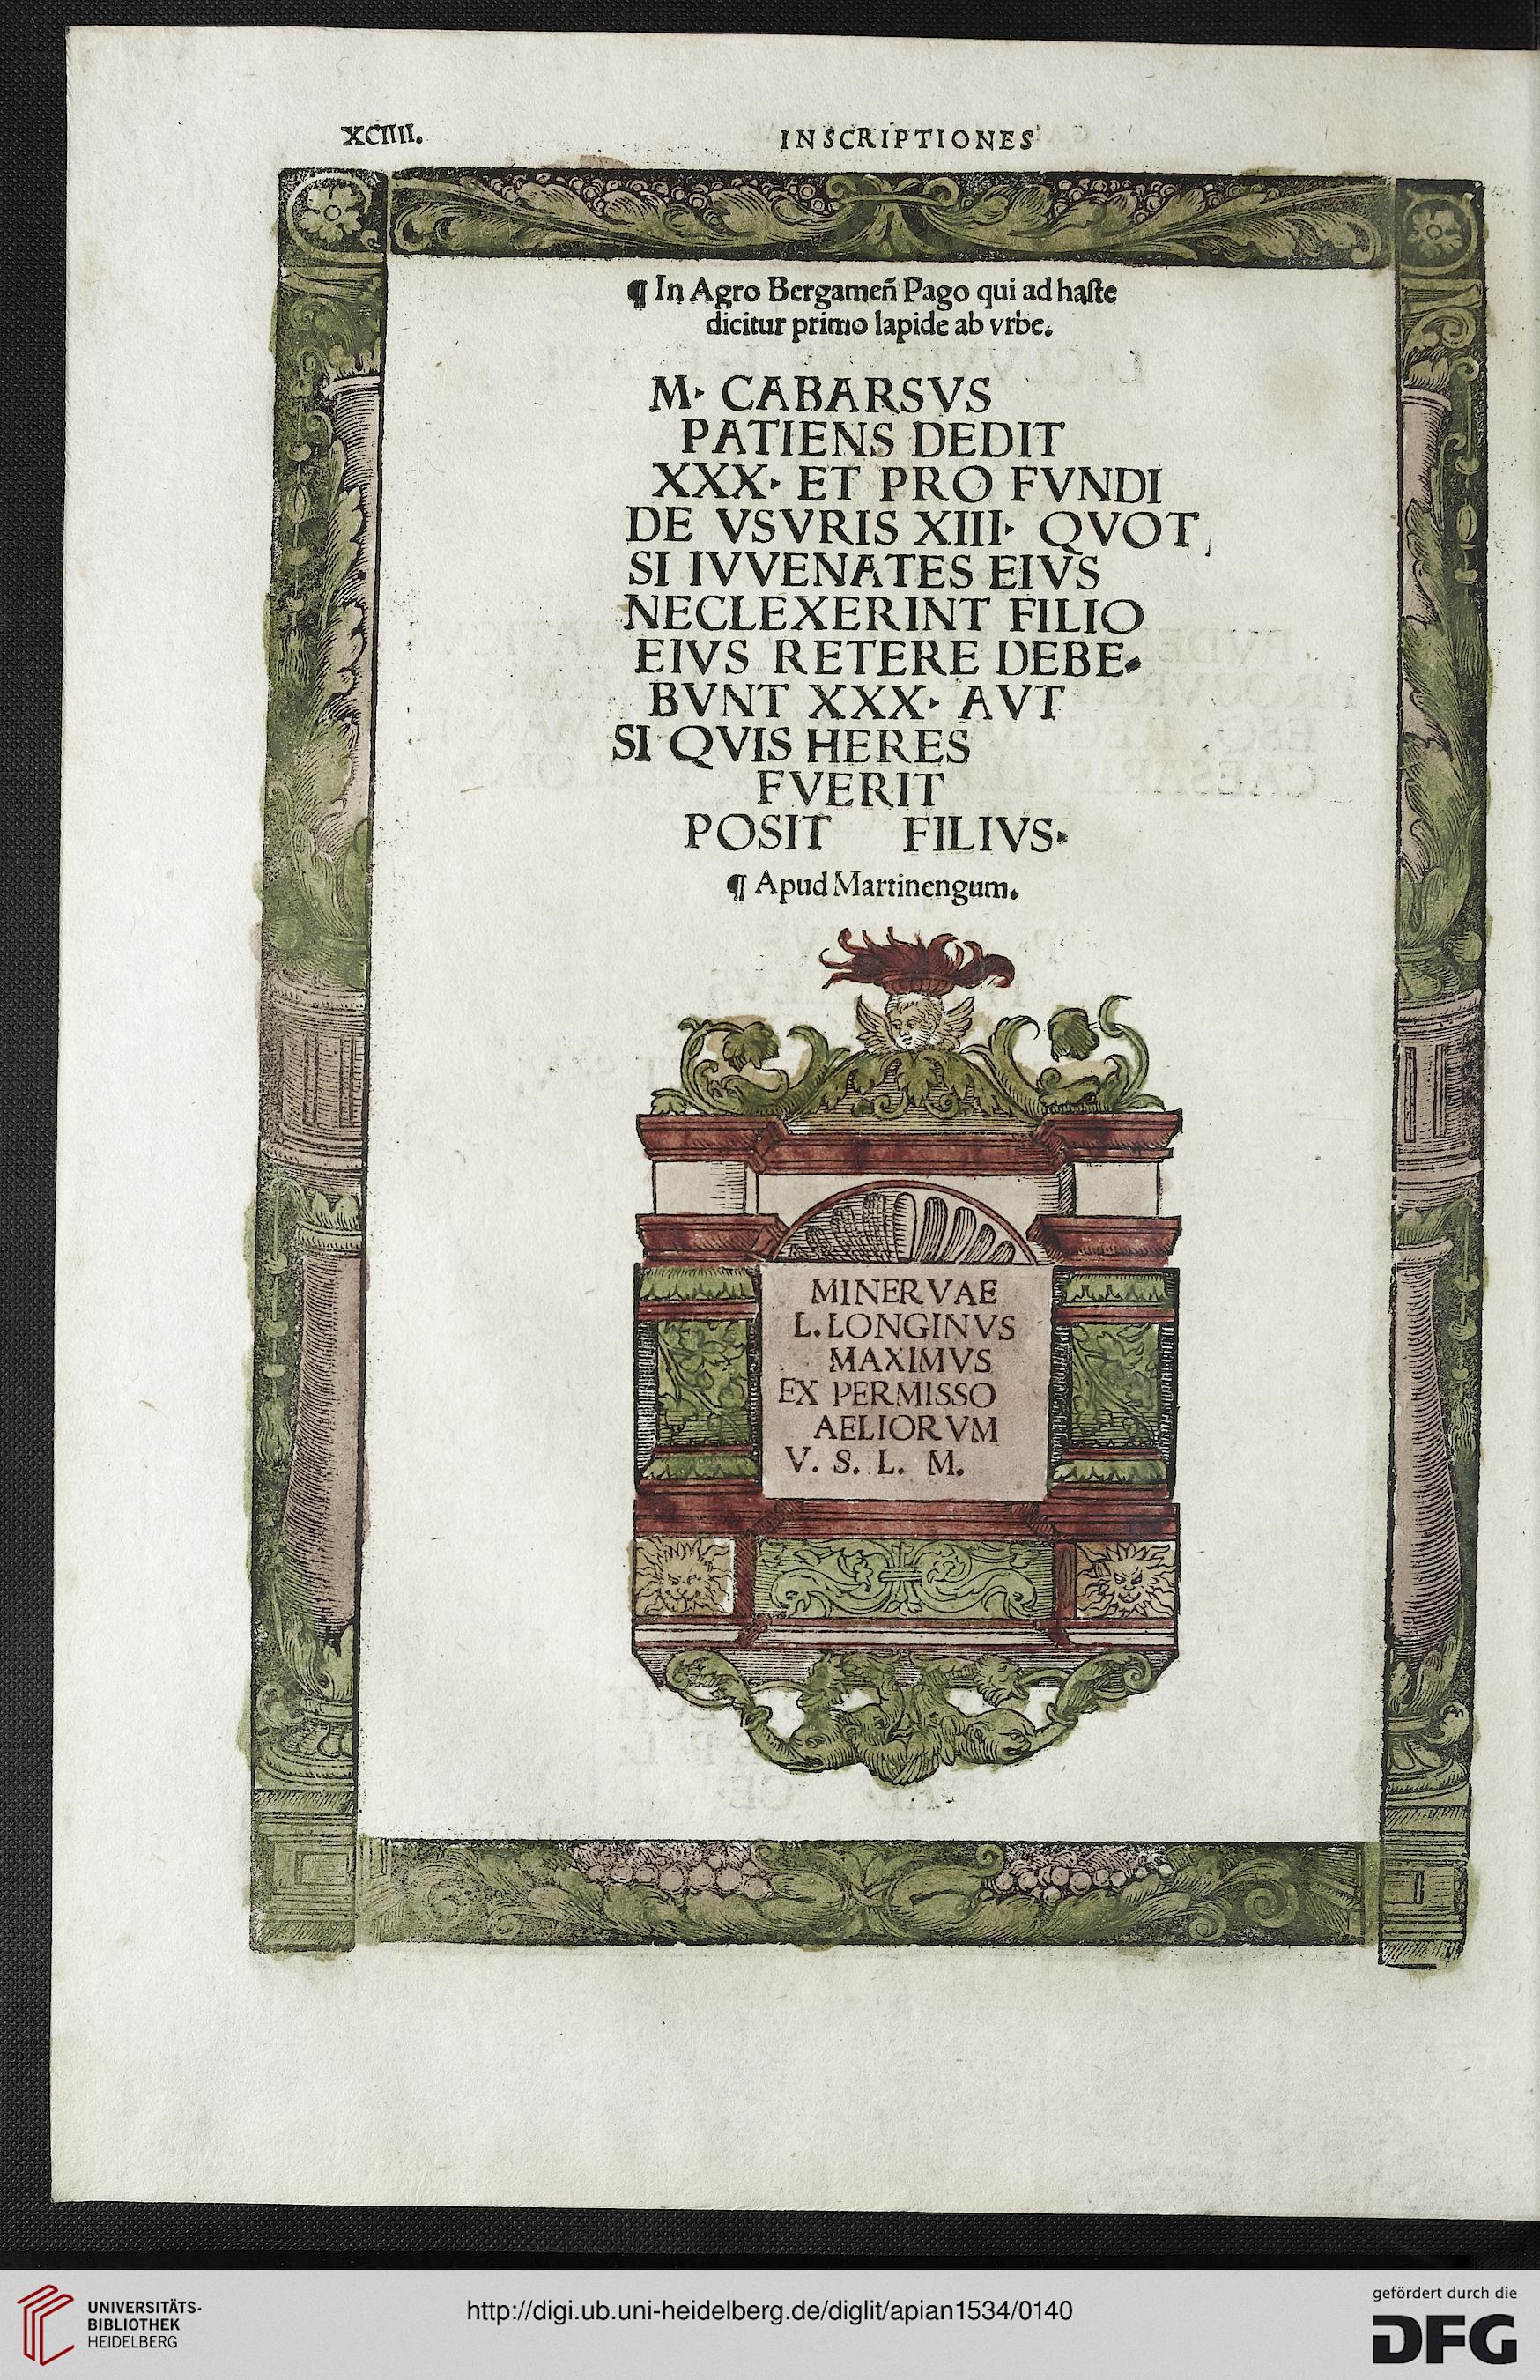 XCIIII.
INSCRIPTIONES
¶ In Agro Bergameñ Pago qui ad haſte
dicitur primo lapide ab vrbe.
M· CABARSVS
PATIENS DEDIT
XXX· ET PRO FVNDI
DE VSVRIS XIII· QVOT
SI IVVENATES EIVS
NECLEXERINT FILIO
EIVS RETERE DEBE-
BVNT XXX· AVT
SI QVIS HERES
FVERIT
POSIT FILIVS·
¶ Apud Martinengum.
MINERVAE
L. LONGINVS
MAXIMVS
EX PERMISSO
AELIORVM
V. S. L. M.
UNIVERSITÄTS-
BIBLIOTHEK
HEIDELBERG
http://digi.ub.uni-heidelberg.de/diglit/apian1534/0140
gefördert durch die
DFG